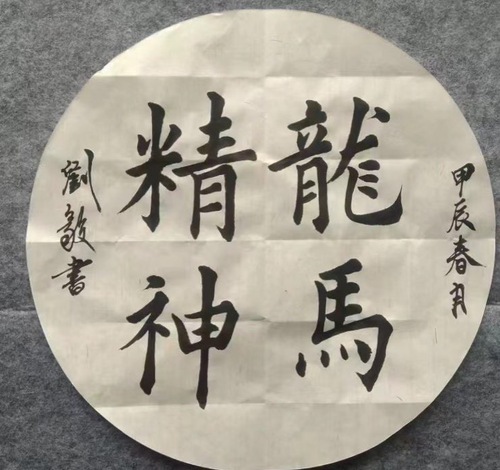 甲辰春月
龍馬
精神
劉敬書